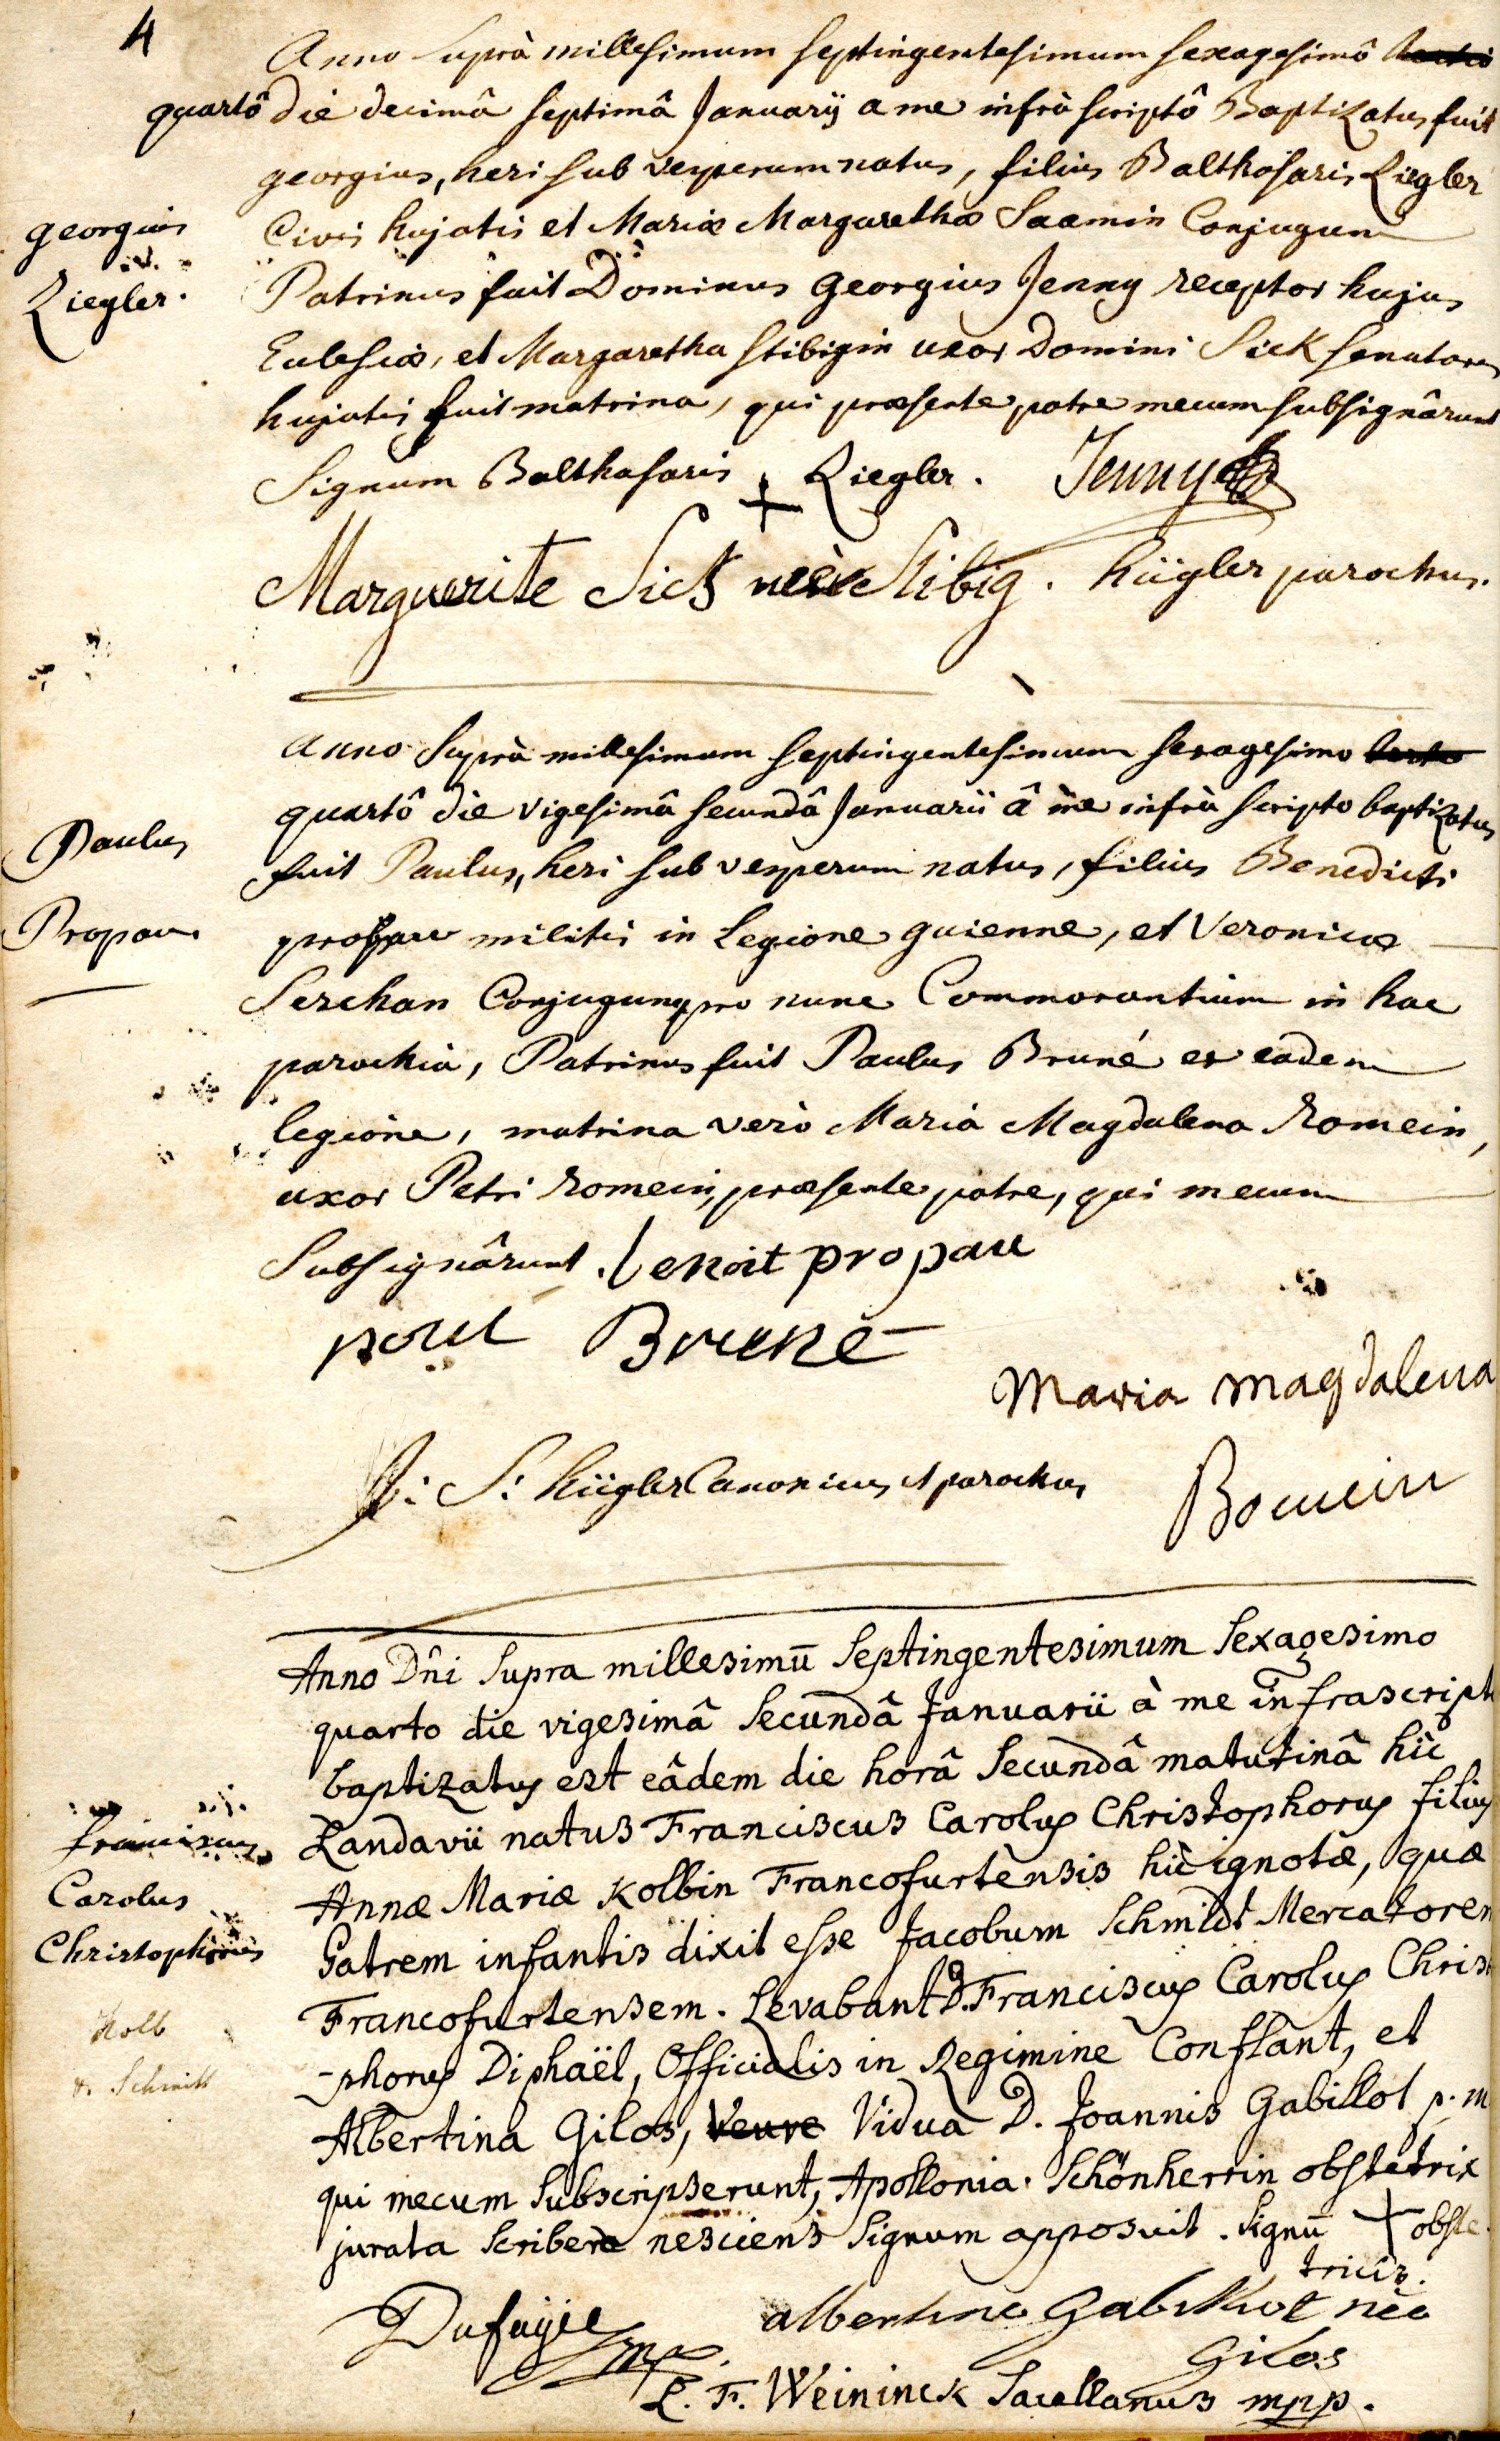 4
Anno suprà millesimum septingentesimum sexagesimô
quartô die decimâ septimâ Januarij a me infrà scriptô Baptizatus fuit
georgius, heri sub vesperum natus, filius Balthasaris Ziegler
Civis hujatis et Mariæ Margarethæ Saamin Conjugum
georgius
Ziegler.
Patrinus fuit Dominus Georgius Jenny receptor hujus
Eclesiæ, et Margaretha Stibigin uxor Domini Sick senatoris
hujatis fuit matrina, qui præsente patre mecum subsignârunt
Signum Balthasaris + Ziegler. Jenny
Marguerite Sick neè Stibig. Kügler parochus.
Anno Suprà millesimum septingentesimum sexagesimo
quartô die vigesimâ secundâ Januarii â me infrà scripto baptizatus
fuit Paulus, heri sub vesperum natus, filius Benedicti
Paulus
Propau
propau militis in Legione guienne, et Veronicæ
Serchan Conjugum pro nunc Commorantium in hac
parochia, Patrinus fuit Paulus Bruné ex eadem
legione, matrina verò Maria Magdalena Romein,
uxor Petri Romein, præsente patre, qui mecum
Subsignârunt. benoit propau
poul Brune
Maria Magdalena
J: S: Kügler Canonicus et parochus
Bomein
Anno Dn̄i supra millesimū Septingentesimum Sexagesimo
quarto die vigesimâ Secundâ Januarii à me infrascript
baptizatus est eâdem die horâ Secundâ matutinâ hîc
Landavii natus Franciscus Carolus Christophorus filius
Annæ Mariæ Kolbin Francofurtensis hìc ignotæ, quæ
Franciscus
Carolus
Christophorus
Kolb
v. Schmitt
Patrem infantis dixit esse Jacobum Schmidt Mercatorem
Francofurtensem. Levabant D. Franciscus Carolus Christ
-phorus Diphaël, Officialis in Regimine Conflant, et
Albertina Gilos, Veuve Vidua D. Joannis Gabillot p. m
qui mecum Subscripserunt, Apollonia Schönherrin obstetrix
jurata scribere nesciens Signum apposuit. Signū + obste
tricis.
Dufaÿie mp. albertine Gabillot nèe
Gilos
L. F. Weininck Sacellanus mpp.